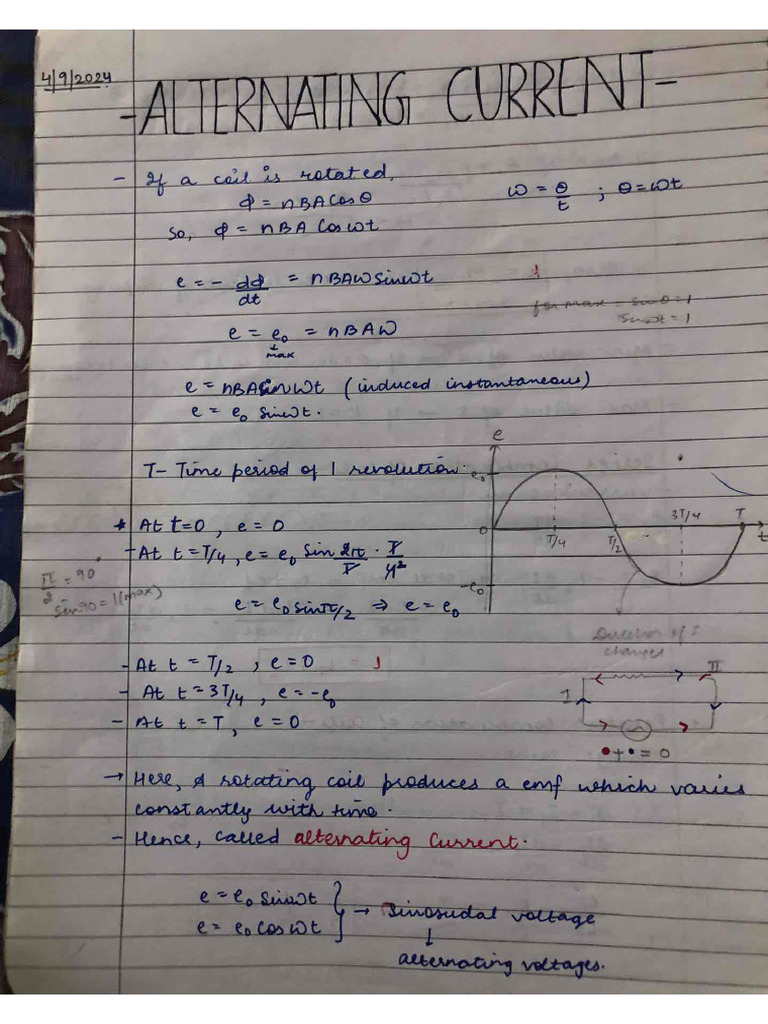 4/9/2024
-ALTERNATING CURRENT-
- If a coil is rotated,
Φ = nBA Cosθ
ω = θ/t ; θ = ωt
So, Φ = nBA Cosωt
e = - dΦ/dt = nBAω Sinωt
for max = sinθ = 1
Sinωt = 1
e = e₀ = nBAω
↓
max
e = nBA sin ωt (induced instantaneous)
e = e₀ Sinωt.
T - Time period of 1 revolution.
e
e₀
0
T/4
T/2
3T/4
T
t
-e₀
* At t=0, e = 0
- At t = T/4, e = e₀ Sin 2π/T · T/4 2
π/2 = 90
sin90 = 1(max)
e = e₀ sin π/2 ⇒ e = e₀
Direction of I
changes
- At t = T/2, e = 0
- At t = 3T/4, e = -e₀
- At t = T, e = 0
I
II
• + • = 0
→ Here, A rotating coil produces a emf which varies
constantly with time.
- Hence, called alternating Current.
e = e₀ Sinωt
e = e₀ Cos ωt
} → Sinosudal voltage
↓
alternating voltages.